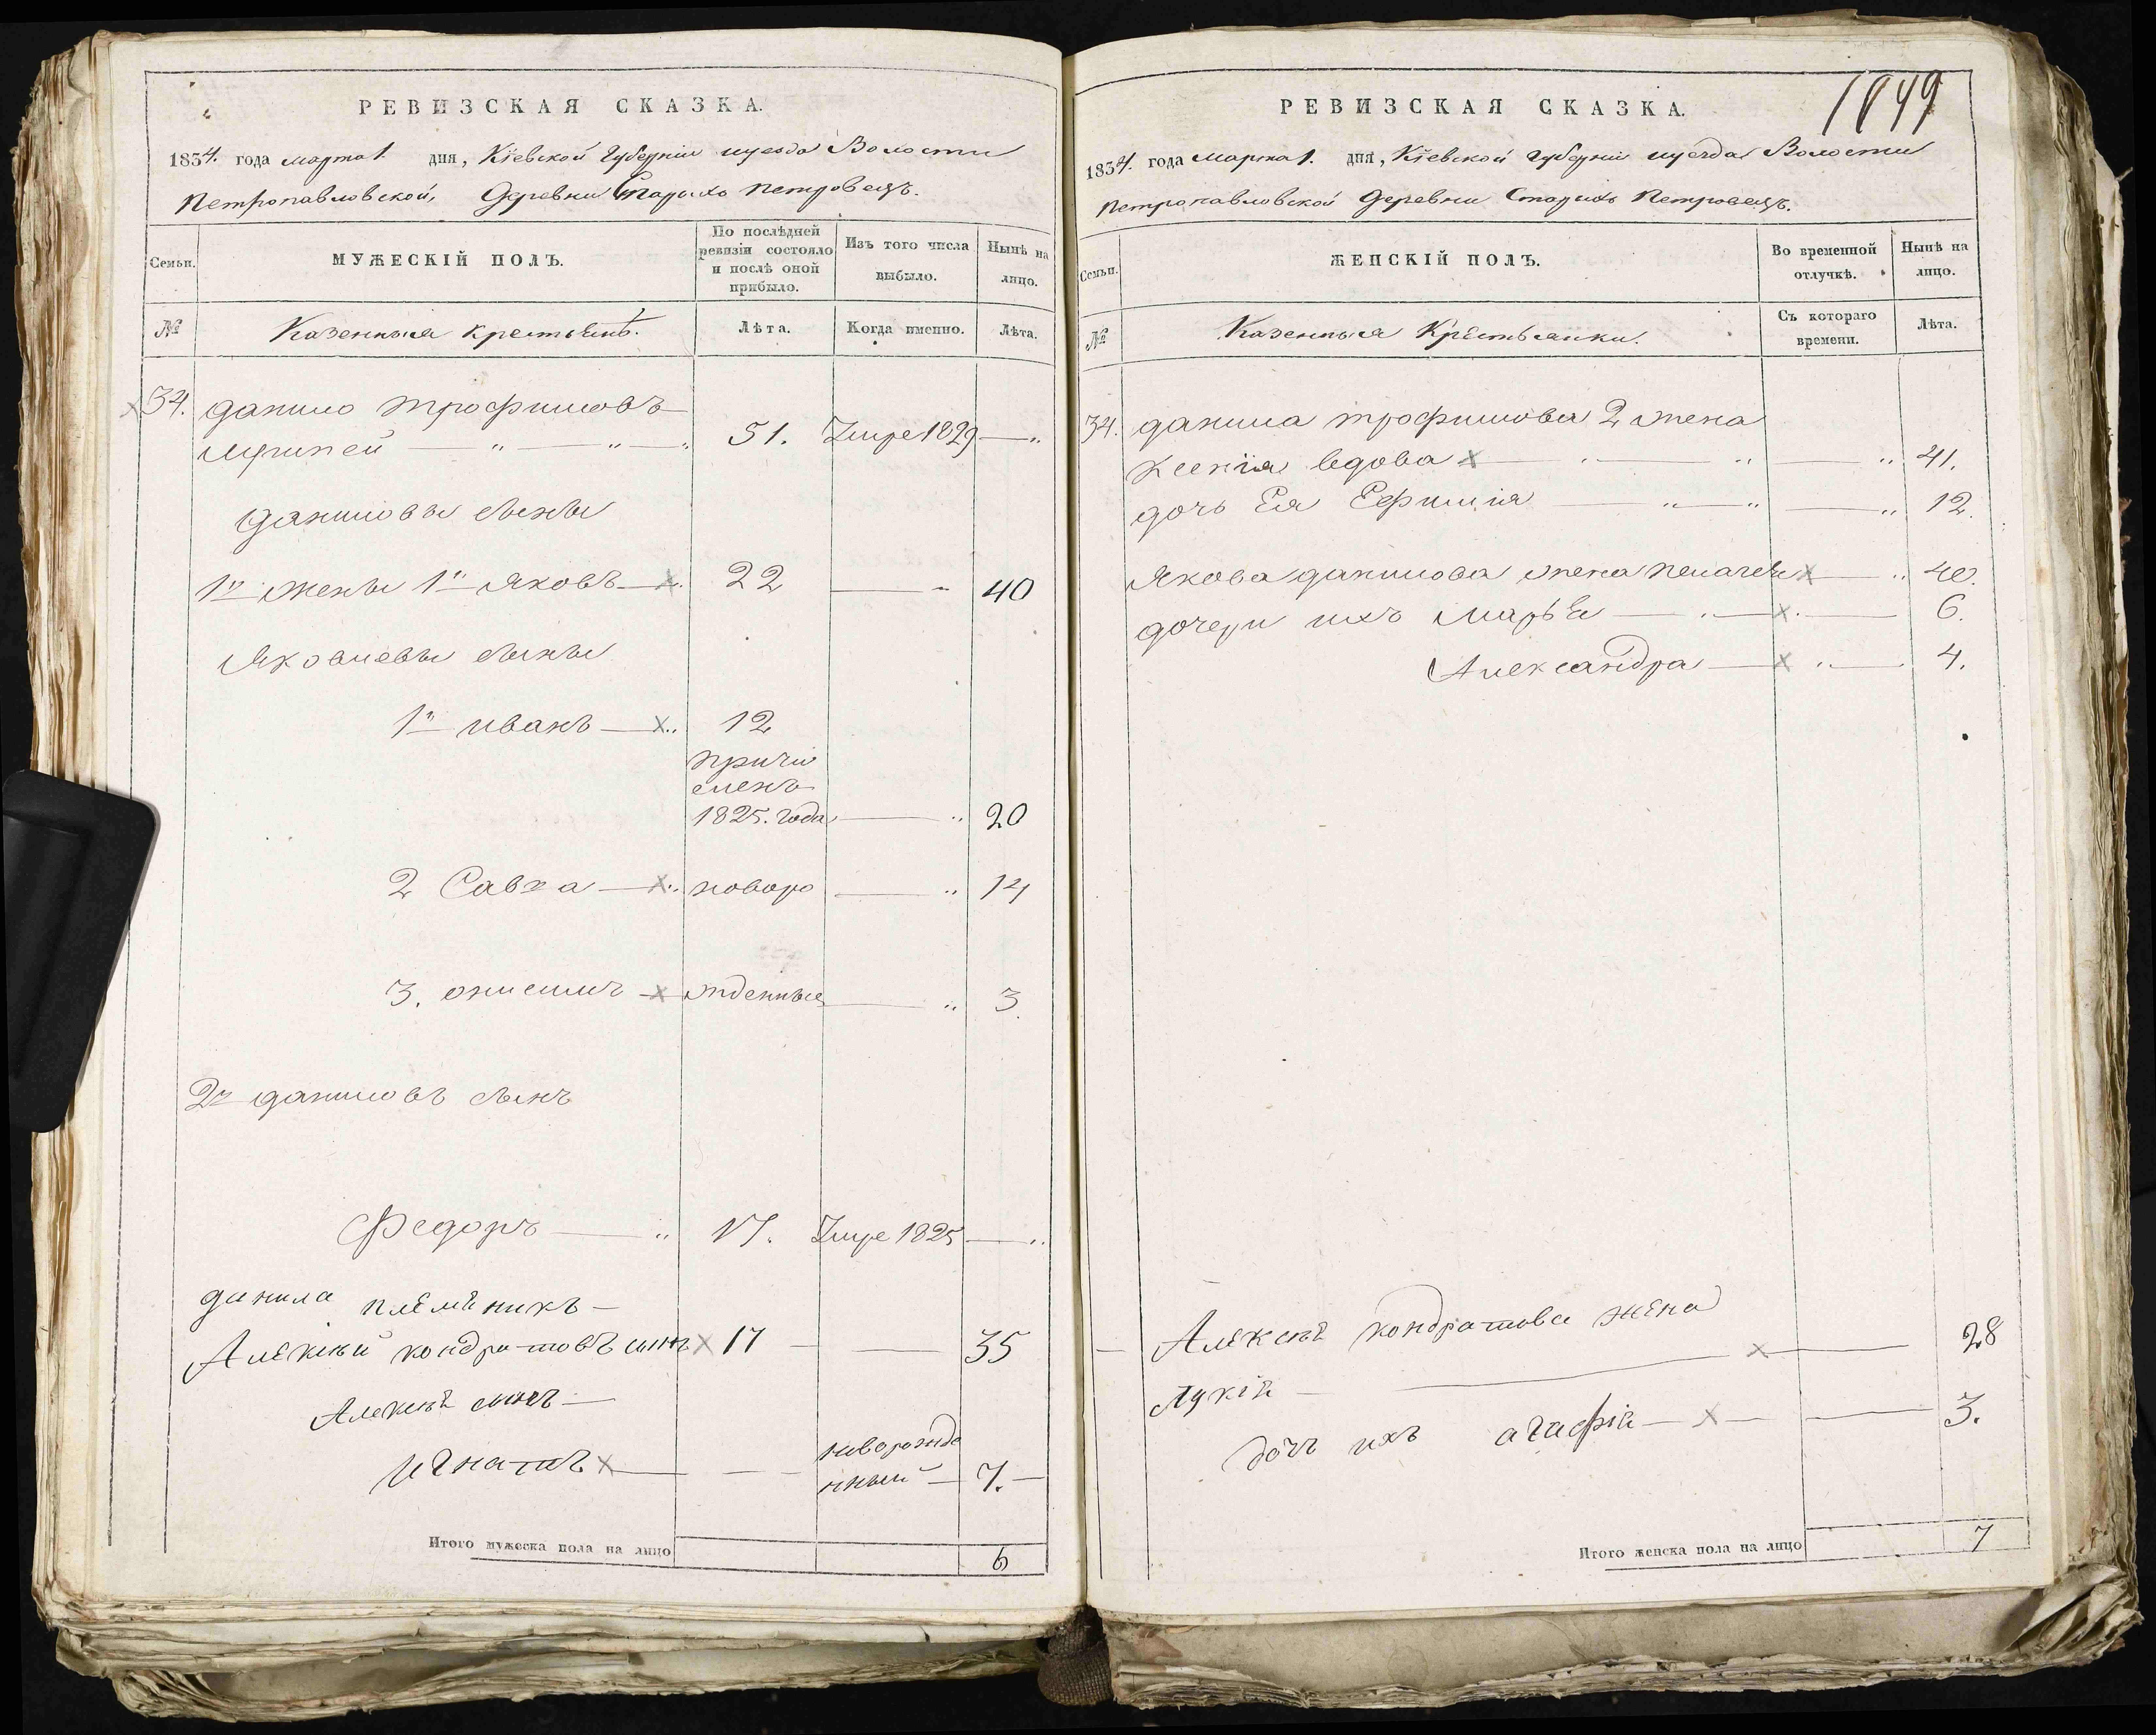 РЕВИЗСКАЯ СКАЗКА.
1834. года марта 1. дня, Кіевской Губерніи уезда Волости
Петропавловской, Деревни Старыхъ Петровецъ.
Семьи.
МУЖЕСКІЙ ПОЛЪ.
По послѣдней ревизіи состояло и послѣ оной прибыло.
Изъ того числа выбыло.
Нынѣ на лицо.
№
Казенныя крестьянѣ.
Лѣта.
Когда именно.
Лѣта.
34. данило трофимовъ
51. Умре 1829 — „
даниловы сыны
1й жены 1й Яковъ — х. 22 — „ 40
Яковлевы сыны
1й иванъ — х.. 12
причи
сленъ
1825. года — „ 20
2 Савка — х.. новоро — „ 14
3. онисимъ — х жденные — „ 3.
2й даниловъ сынъ
Федоръ — „ 17. Умре 1825 — „
данила племѣникъ —
Алексѣй кондратовъ сынъ х 17 — — 35
Алексѣѣ сынъ —
Игнатъ х — — — новорожде
нный — 7. —
Итого мужеска пола на лицо 6
1849
РЕВИЗСКАЯ СКАЗКА.
1834. года марта 1. дня, Кіевской губерніи уезда Волости
Петропавловской деревни Старыхъ Петровецъ.
Семьи.
ЖЕНСКІЙ ПОЛЪ.
Во временной отлучкѣ.
Нынѣ на лицо.
№
Казенныя Крестьянки.
Съ котораго времени.
Лѣта.
34. данила трофимова 2 жена
Ксенія вдова х — „ — „ — „ 41.
дочь Ея Ефимія — „ — „ — „ 12.
Якова данилова жена пелагея х — „ 40.
дочери ихъ марья — „ — х. — 6.
Александра — х „ — 4.
Алексѣѣ кондратова жена
Лукія — — х — 28
дочъ ихъ агафія — х — — 3.
Итого женска пола на лицо 7